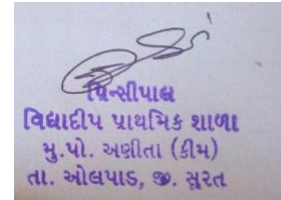 પ્રિન્સીપાલ
વિદ્યાદીપ પ્રાથમિક શાળા
મુ.પો. અણીતા (કીમ)
તા. ઓલપાડ, જી. સુરત